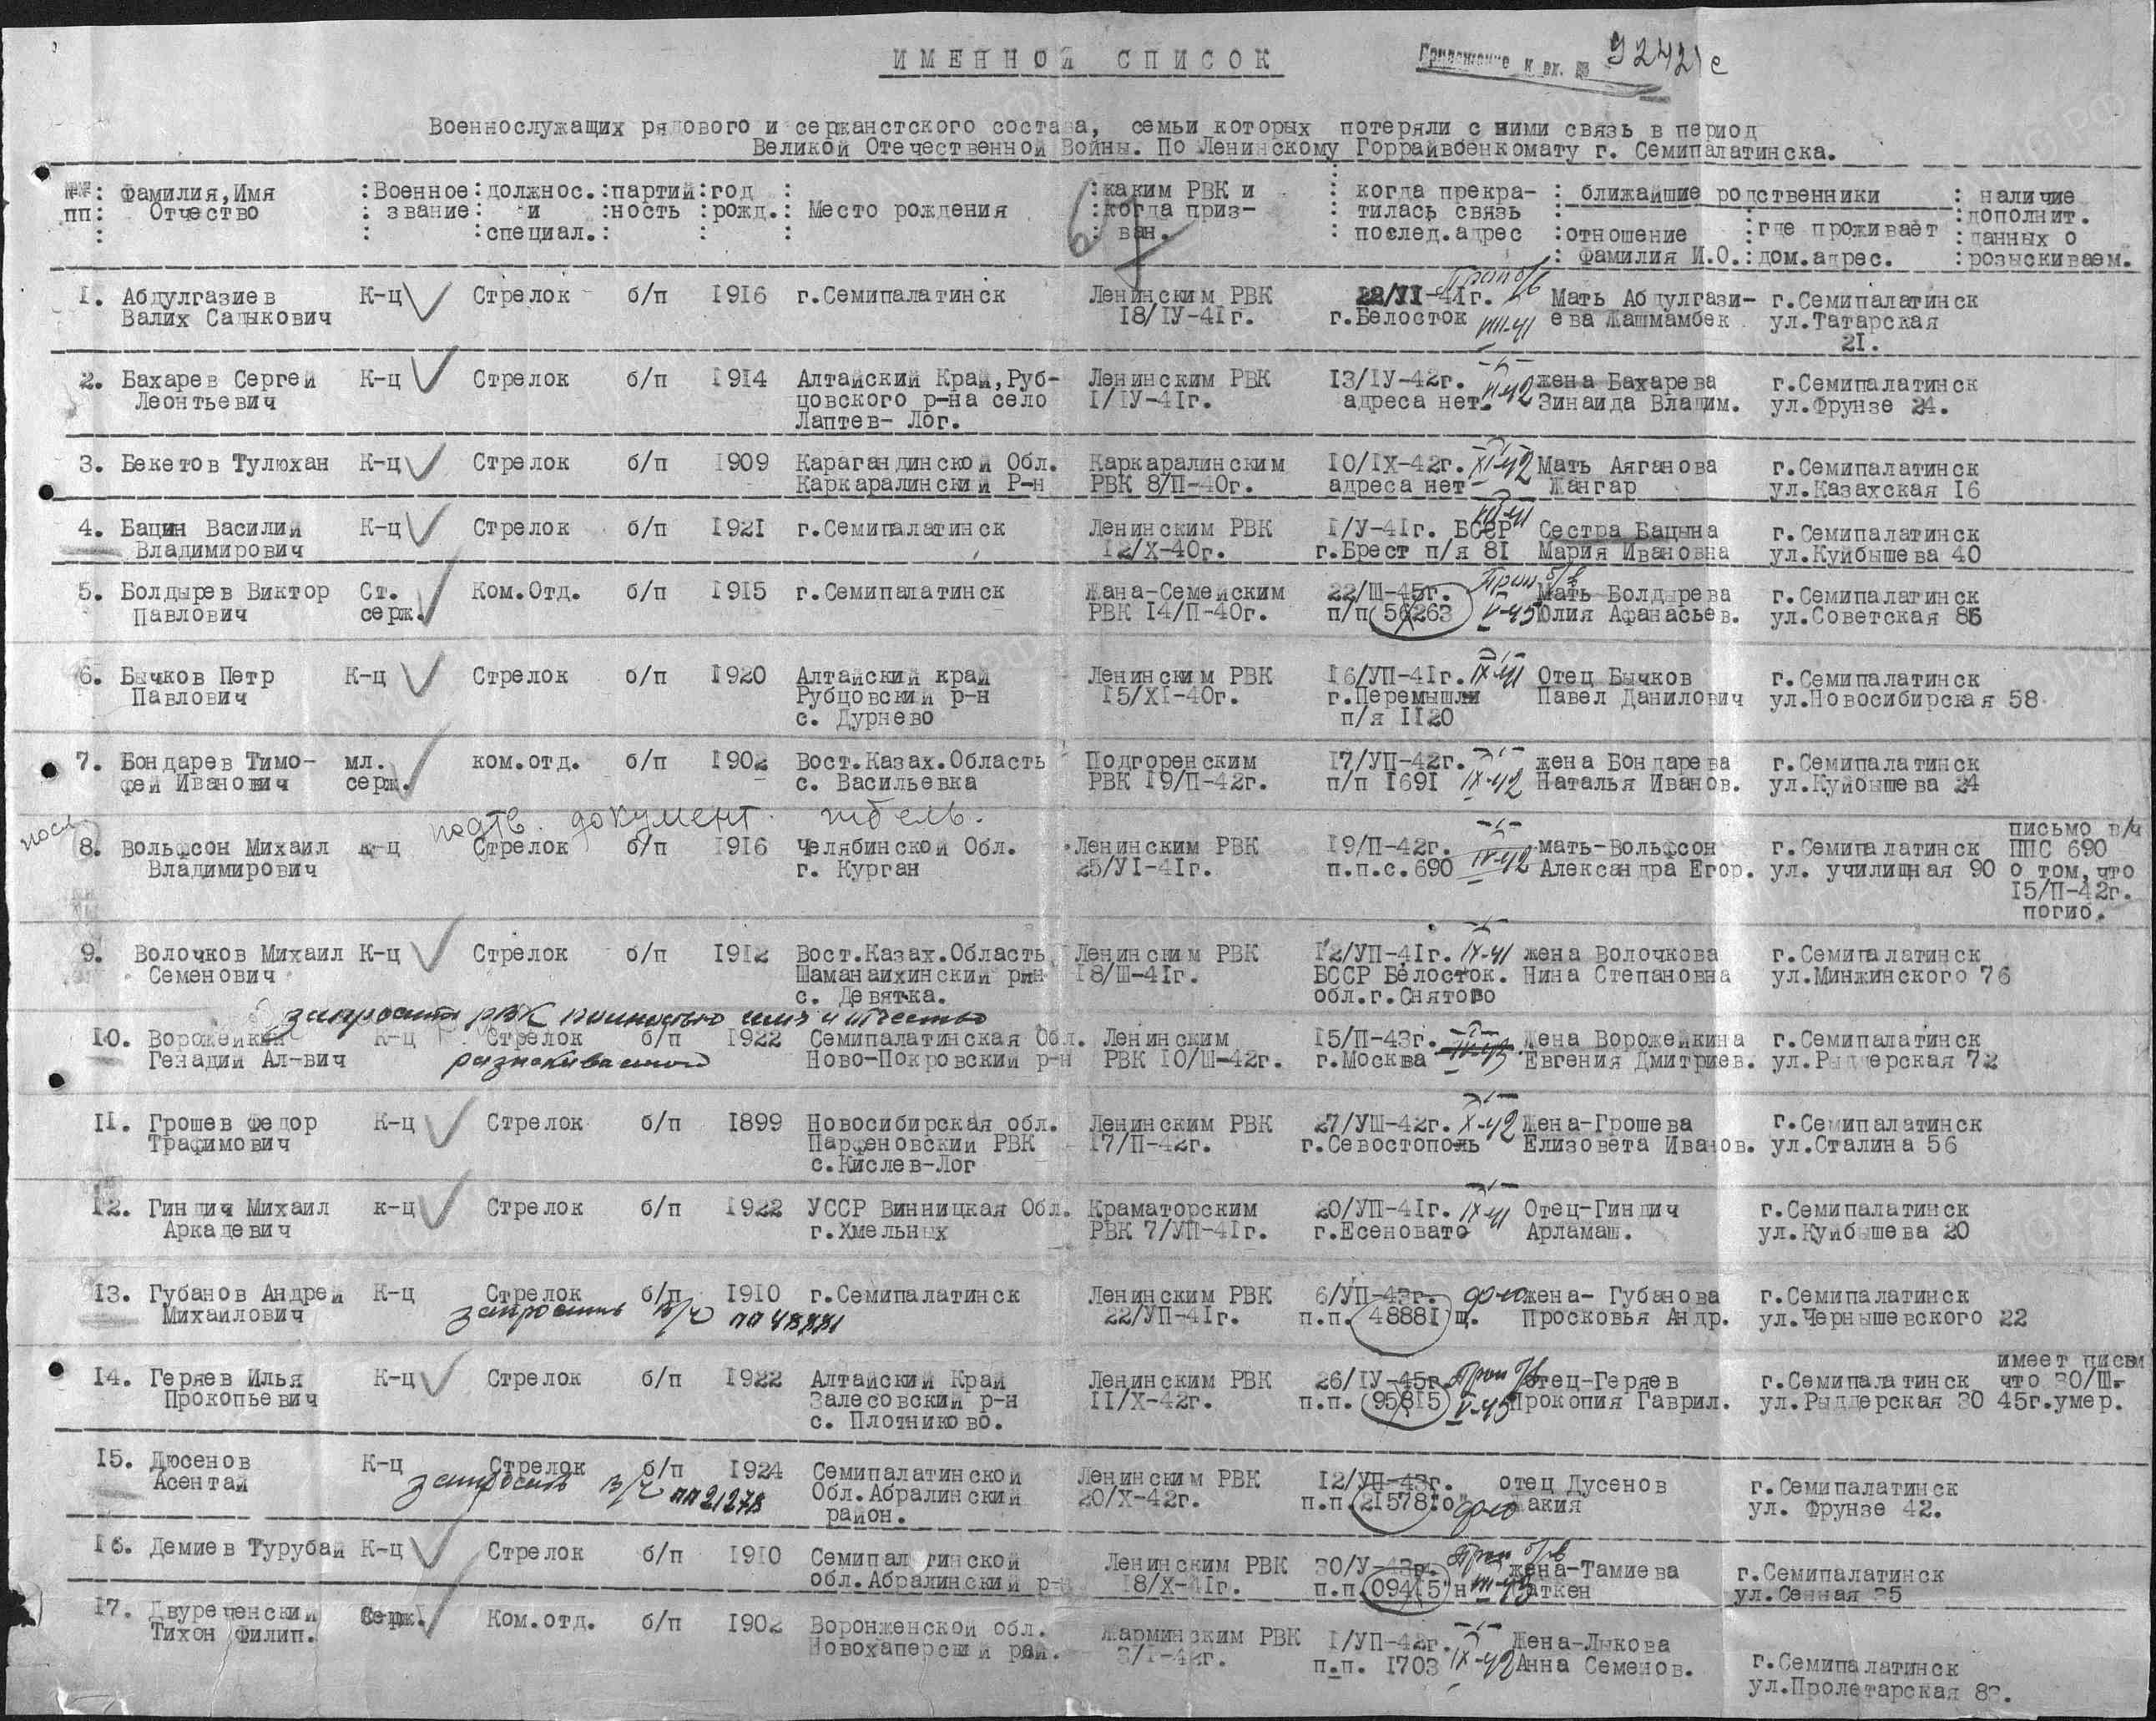 ИМЕННОЙ СПИСОК
Приложение к вх. № 92421с
Военнослужащих рядового и сержанстского состава, семьи которых потеряли с ними связь в период
Великой Отечественной Войны. По Ленинскому Горрайвоенкомату г. Семипалатинска.
№№: Фамилия,Имя :Военное:должнос.:партий:год : :каким РВК и : когда прекра- : ближайшие родственники : наличие
пп: Отчество : звание: и :ность :рожд.: Место рождения :когда приз- : тилась связь : :где проживает :дополнит.
: : :специал.: : : : ван. : послед.адрес :отношение :данных о
: фамилия И.О.:дом.адрес. :розыскиваем.
Проп б/в
1. Абдулгазиев К-ц Стрелок б/п 1916 г.Семипалатинск Ленинским РВК 22/УІ-41г. Мать Абдулгази- г.Семипалатинск
Валих Садыкович 18/ІУ-41г. г.Белосток VIII-41 ева Жашмамбек ул.Татарская
21.
2. Бахарев Сергей К-ц Стрелок б/п 1914 Алтайский Край,Руб- Ленинским РВК 13/ІУ-42г. жена Бахарева г.Семипалатинск
Леонтьевич цовского р-на село 1/ІУ-41г. адреса нет. VI-42 Зинаида Владим. ул.Фрунзе 24.
Лаптев- Лог.
3. Бекетов Тулюхан К-ц Стрелок б/п 1909 Карагандинской Обл. Каркаралинским 10/ІХ-42г. XI-42 Мать Аяганова г.Семипалатинск
Каркаралинский Р-н РВК 8/П-40г. адреса нет Жангар ул.Казахская 16
4. Бацин Василий К-ц Стрелок б/п 1921 г.Семипалатинск Ленинским РВК 1/У-41г. БСсР Сестра Бацына г.Семипалатинск
Владимирович 12/Х-40г. г.Брест п/я 81 Мария Ивановна ул.Куйбышева 40
Проп б/в
5. Болдырев Виктор Ст. Ком.Отд. б/п 1915 г.Семипалатинск Жана-Семейским 22/Ш-45г. Мать Болдырева г.Семипалатинск
Павлович серж. РВК 14/П-40г. п/п 56263 V-45 Юлия Афанасьев. ул.Советская 86
6. Бычков Петр К-ц Стрелок б/п 1920 Алтайский край Ленинским РВК 16/УП-41г. IX-41 Отец Бычков г.Семипалатинск
Павлович Рубцовский р-н 15/ХІ-40г. г.Перемышли Павел Данилович ул.Новосибирская 58
с. Дурнево п/я 1120
7. Бондарев Тимо- мл. ком.отд. б/п 1902 Вост.Казах.Область Подгоренским 17/УП-42г. жена Бондарева г.Семипалатинск
фей Иванович серж. с. Васильевка РВК 19/П-42г. п/п 1691 IX-42 Наталья Иванов. ул.Куйбышева 24
подтв. документ. гибель.
письмо в/ч
8. Вольфсон Михаил к-ц Стрелок б/п 1916 Челябинской Обл. Ленинским РВК 19/П-42г. мать-Вольфсон г.Семипалатинск ППС 690
Владимирович г. Курган 25/УІ-41г. п.п.с.690 IV-42 Александра Егор. ул. училищная 90 о том,что
15/П-42г.
погиб.
9. Волочков Михаил К-ц Стрелок б/п 1912 Вост.Казах.Область Ленинским РВК 12/УП-41г. IX-41 жена Волочкова г.Семипалатинск
Семенович Шаманаихинский рин 18/Ш-41г. БССР Белосток. Нина Степановна ул.Минжинского 76
с. Девятка. обл.г.Снятово
запросить РВК полностью имя и отчество
10. Ворожейкин К-ц Стрелок б/п 1922 Семипалатинская Обл. Ленинским 15/П-43г. Жена Ворожейкина г.Семипалатинск
Генадий Ал-вич разыскиваемого Ново-Покровский р-н РВК 10/Ш-42г. г.Москва Евгения Дмитриев. ул.Рыддерская 72
11. Грошев Федор К-ц Стрелок б/п 1899 Новосибирская обл. Ленинским РВК 27/УШ-42г. X-42 Жена-Грошева г.Семипалатинск
Трафимович Парфеновский РВК 17/П-42г. г.Севостополь Елизовета Иванов. ул.Сталина 56
с.Кислев-Лог
12. Гиндич Михаил к-ц Стрелок б/п 1922 УССР Винницкая Обл. Краматорским 20/УП-41г. IX-41 Отец-Гиндич г.Семипалатинск
Аркадевич г.Хмельных РВК 7/УП-41г. г.Есеновато Арламаш. ул.Куйбышева 20
13. Губанов Андрей К-ц Стрелок б/п 1910 г.Семипалатинск Ленинским РВК 6/УП-43г. жена- Губанова г.Семипалатинск
Михайлович запросить В/Ч пп 48881 22/УП-41г. п.п. 48881 Щ. Просковья Андр. ул.Чернышевского 22
имеет письм
14. Геряев Илья К-ц Стрелок б/п 1922 Алтайский Край Ленинским РВК 26/ІУ-45г. Проп б/в отец-Геряев г.Семипалатинск что 30/Ш-
Прокопьевич Залесовский р-н 11/Х-42г. п.п. 95815 V-45 Прокопия Гаврил. ул.Рыддерская 30 45г.умер.
с. Плотниково.
15. Дюсенов К-ц Стрелок б/п 1924 Семипалатинской Ленинским РВК 12/УП-43г. отец Дусенов г.Семипалатинск
Асентай запросить В/Ч пп 21278 Обл.Абралинский 20/Х-42г. п.п. 21578 "о" Жакия ул. Фрунзе 42.
район.
Проп б/в
16. Демиев Турубай К-ц Стрелок б/п 1910 Семипалатинской Ленинским РВК 30/У-43г. жена-Тамиева г.Семипалатинск
обл.Абралинский р-н 18/Х-41г. п.п. 09415"н" Каткен ул.Сенная 35
17. Двуреченский Серж. Ком.отд. б/п 1902 Воронженской обл. Жарминским РВК 1/УП-42г. Жена-Лыкова
Тихон Филип. Новохаперский рай. п.п. 1703 IX-42 Анна Семенов. г.Семипалатинск
ул.Пролетарская